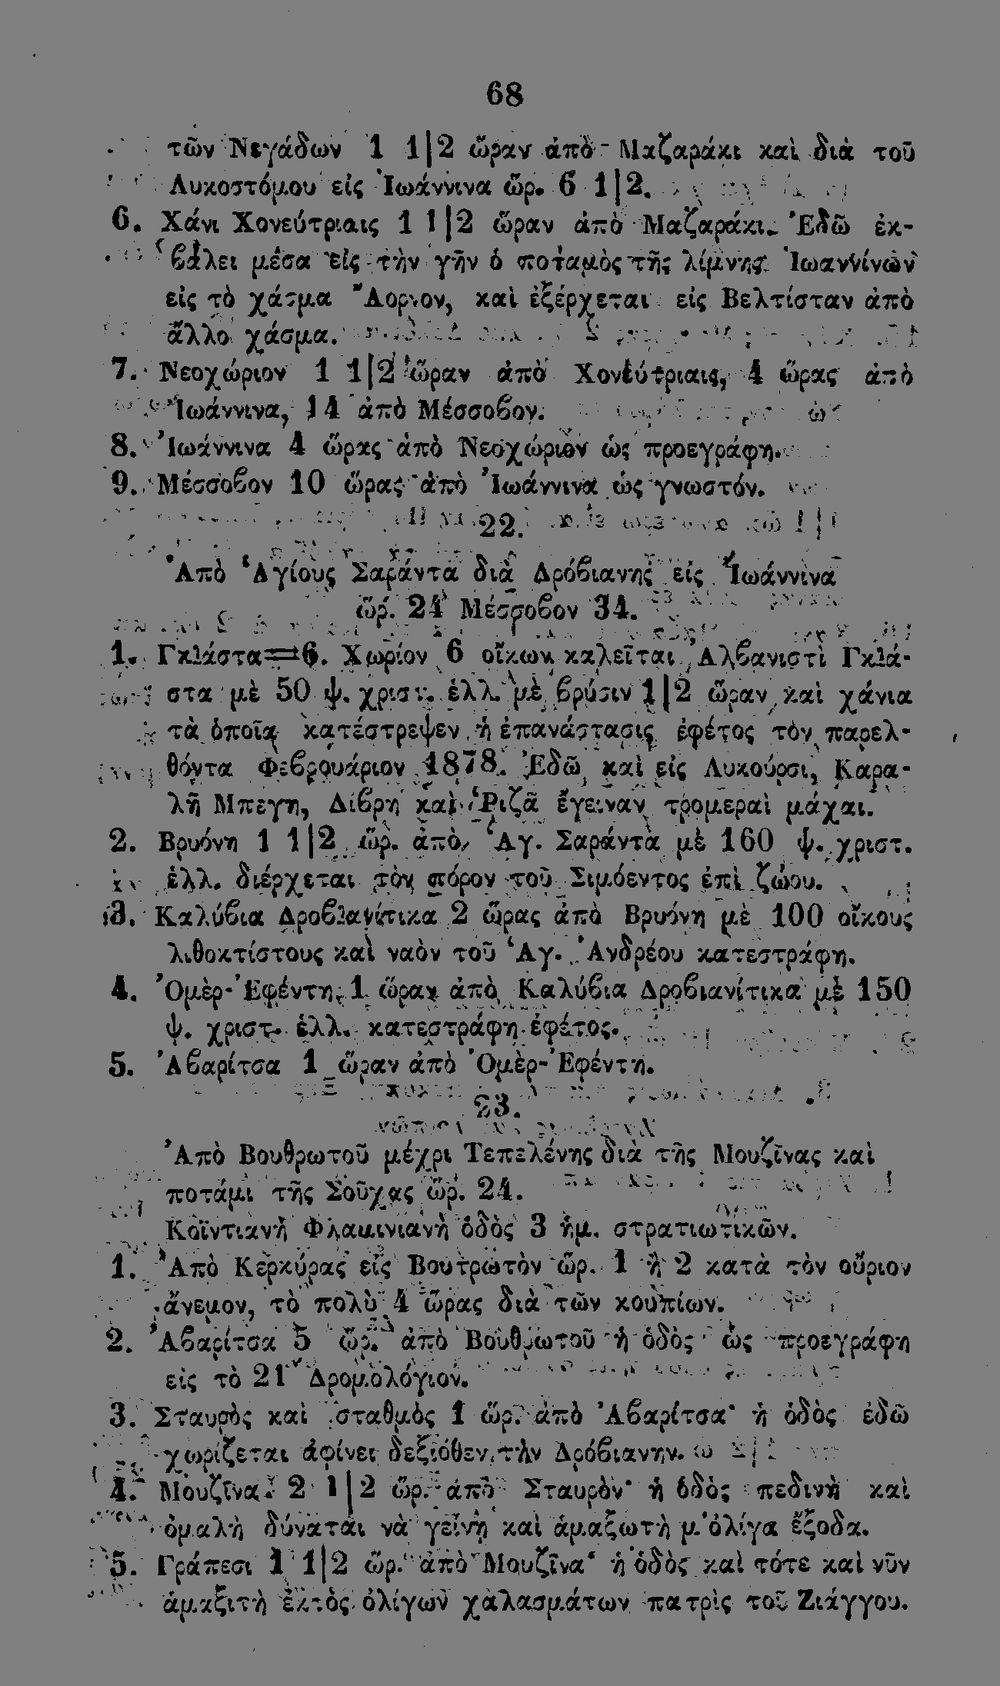 68
τῶν Νεγάδων 1 1|2 ὥραν ἀπὸ Μαζαράκι καὶ διὰ τοῦ
Λυκοστόμου εἰς Ἰωάννινα ὥρ. 6 1|2.
6. Χάνι Χονεύτριαις 1 1|2 ὥραν ἀπὸ Μαζαράκι. Ἐδῶ ἐκ-
βάλει μέσα εἰς τὴν γῆν ὁ ποταμὸς τῆς λίμνης Ἰωαννίνων
εἰς τὸ χάσμα Ἄορνον, καὶ ἐξέρχεται εἰς Βελτίσταν ἀπὸ
ἄλλο χάσμα.
7. Νεοχώριον 1 1|2 ὥραν ἀπὸ Χονεύτριαις, 4 ὥρας ἀπὸ
Ἰωάννινα, 14 ἀπὸ Μέσσοβον.
8. Ἰωάννινα 4 ὥρας ἀπὸ Νεοχώριον ὡς προεγράφη.
9. Μέσσοβον 10 ὥρας ἀπὸ Ἰωάννινα ὡς γνωστόν.
22.
Ἀπὸ Ἁγίους Σαράντα διὰ Δρόβιανης εἰς Ἰωάννινα
ὥρ. 24 Μέσσοβον 34.
1. Γκλάστα=6. Χωρίον 6 οἴκων καλεῖται Ἀλβανιστὶ Γκλά-
στα μὲ 50 ψ. χριστ. ἑλλ. μὲ βρύσιν 1|2 ὥραν καὶ χάνια
τὰ ὁποῖα κατέστρεψεν ἡ ἐπανάστασις ἐφέτος τὸν παρελ-
θόντα Φεβρουάριον 1878. Ἐδῶ καὶ εἰς Λυκούρσι, Καρα-
λῆ Μπεγη, Δίβρη καὶ Ῥιζᾶ ἔγειναν τρομεραὶ μάχαι.
2. Βρυόνη 1 1|2 ὥρ. ἀπὸ Ἁγ. Σαράντα μὲ 160 ψ. χριστ.
ἑλλ. διέρχεται τὸν πόρον τοῦ Σιμόεντος ἐπὶ ζώου.
3. Καλύβια Δροβιανίτικα 2 ὥρας ἀπὸ Βρυόνη μὲ 100 οἴκους
λιθοκτίστους καὶ ναὸν τοῦ Ἁγ. Ἀνδρέου κατεστράφη.
4. Ὀμὲρ-Ἐφέντη 1 ὥραν ἀπὸ Καλύβια Δροβιανίτικα μὲ 150
ψ. χριστ. ἑλλ. κατεστράφη ἐφέτος.
5. Ἀβαρίτσα 1 ὥραν ἀπὸ Ὀμὲρ-Ἐφέντη.
23.
Ἀπὸ Βουθρωτοῦ μέχρι Τεπελένης διὰ τῆς Μουζῖνας καὶ
ποτάμι τῆς Σοῦχας ὥρ. 24.
Κοϊντιανὴ Φλαμινιανὴ ὁδὸς 3 ἡμ. στρατιωτικῶν.
1. Ἀπὸ Κερκύρας εἰς Βουτρωτὸν ὥρ. 1 ἢ 2 κατὰ τὸν οὔριον
ἄνεμον, τὸ πολὺ 4 ὥρας διὰ τῶν κουπίων.
2. Ἀβαρίτσα 5 ὥρ. ἀπὸ Βουθρωτοῦ ἡ ὁδὸς ὡς προεγράφη
εἰς τὸ 21 Δρομολόγιον.
3. Σταυρὸς καὶ σταθμὸς 1 ὥρ. ἀπὸ Ἀβαρίτσα· ἡ ὁδὸς ἐδῶ
χωρίζεται ἀφίνει δεξιόθεν τὴν Δρόβιανην.
4. Μουζῖνα 2 1|2 ὥρ. ἀπὸ Σταυρὸν· ἡ ὁδὸς πεδινὴ καὶ
ὁμαλὴ δύναται νὰ γείνῃ καὶ ἁμαξωτὴ μ' ὀλίγα ἔξοδα.
5. Γράπεσι 1 1|2 ὥρ. ἀπὸ Μουζῖνα· ἡ ὁδὸς καὶ τότε καὶ νῦν
ἁμαξιτὴ ἐκτὸς ὀλίγων χαλασμάτων πατρὶς τοῦ Ζιάγγου.